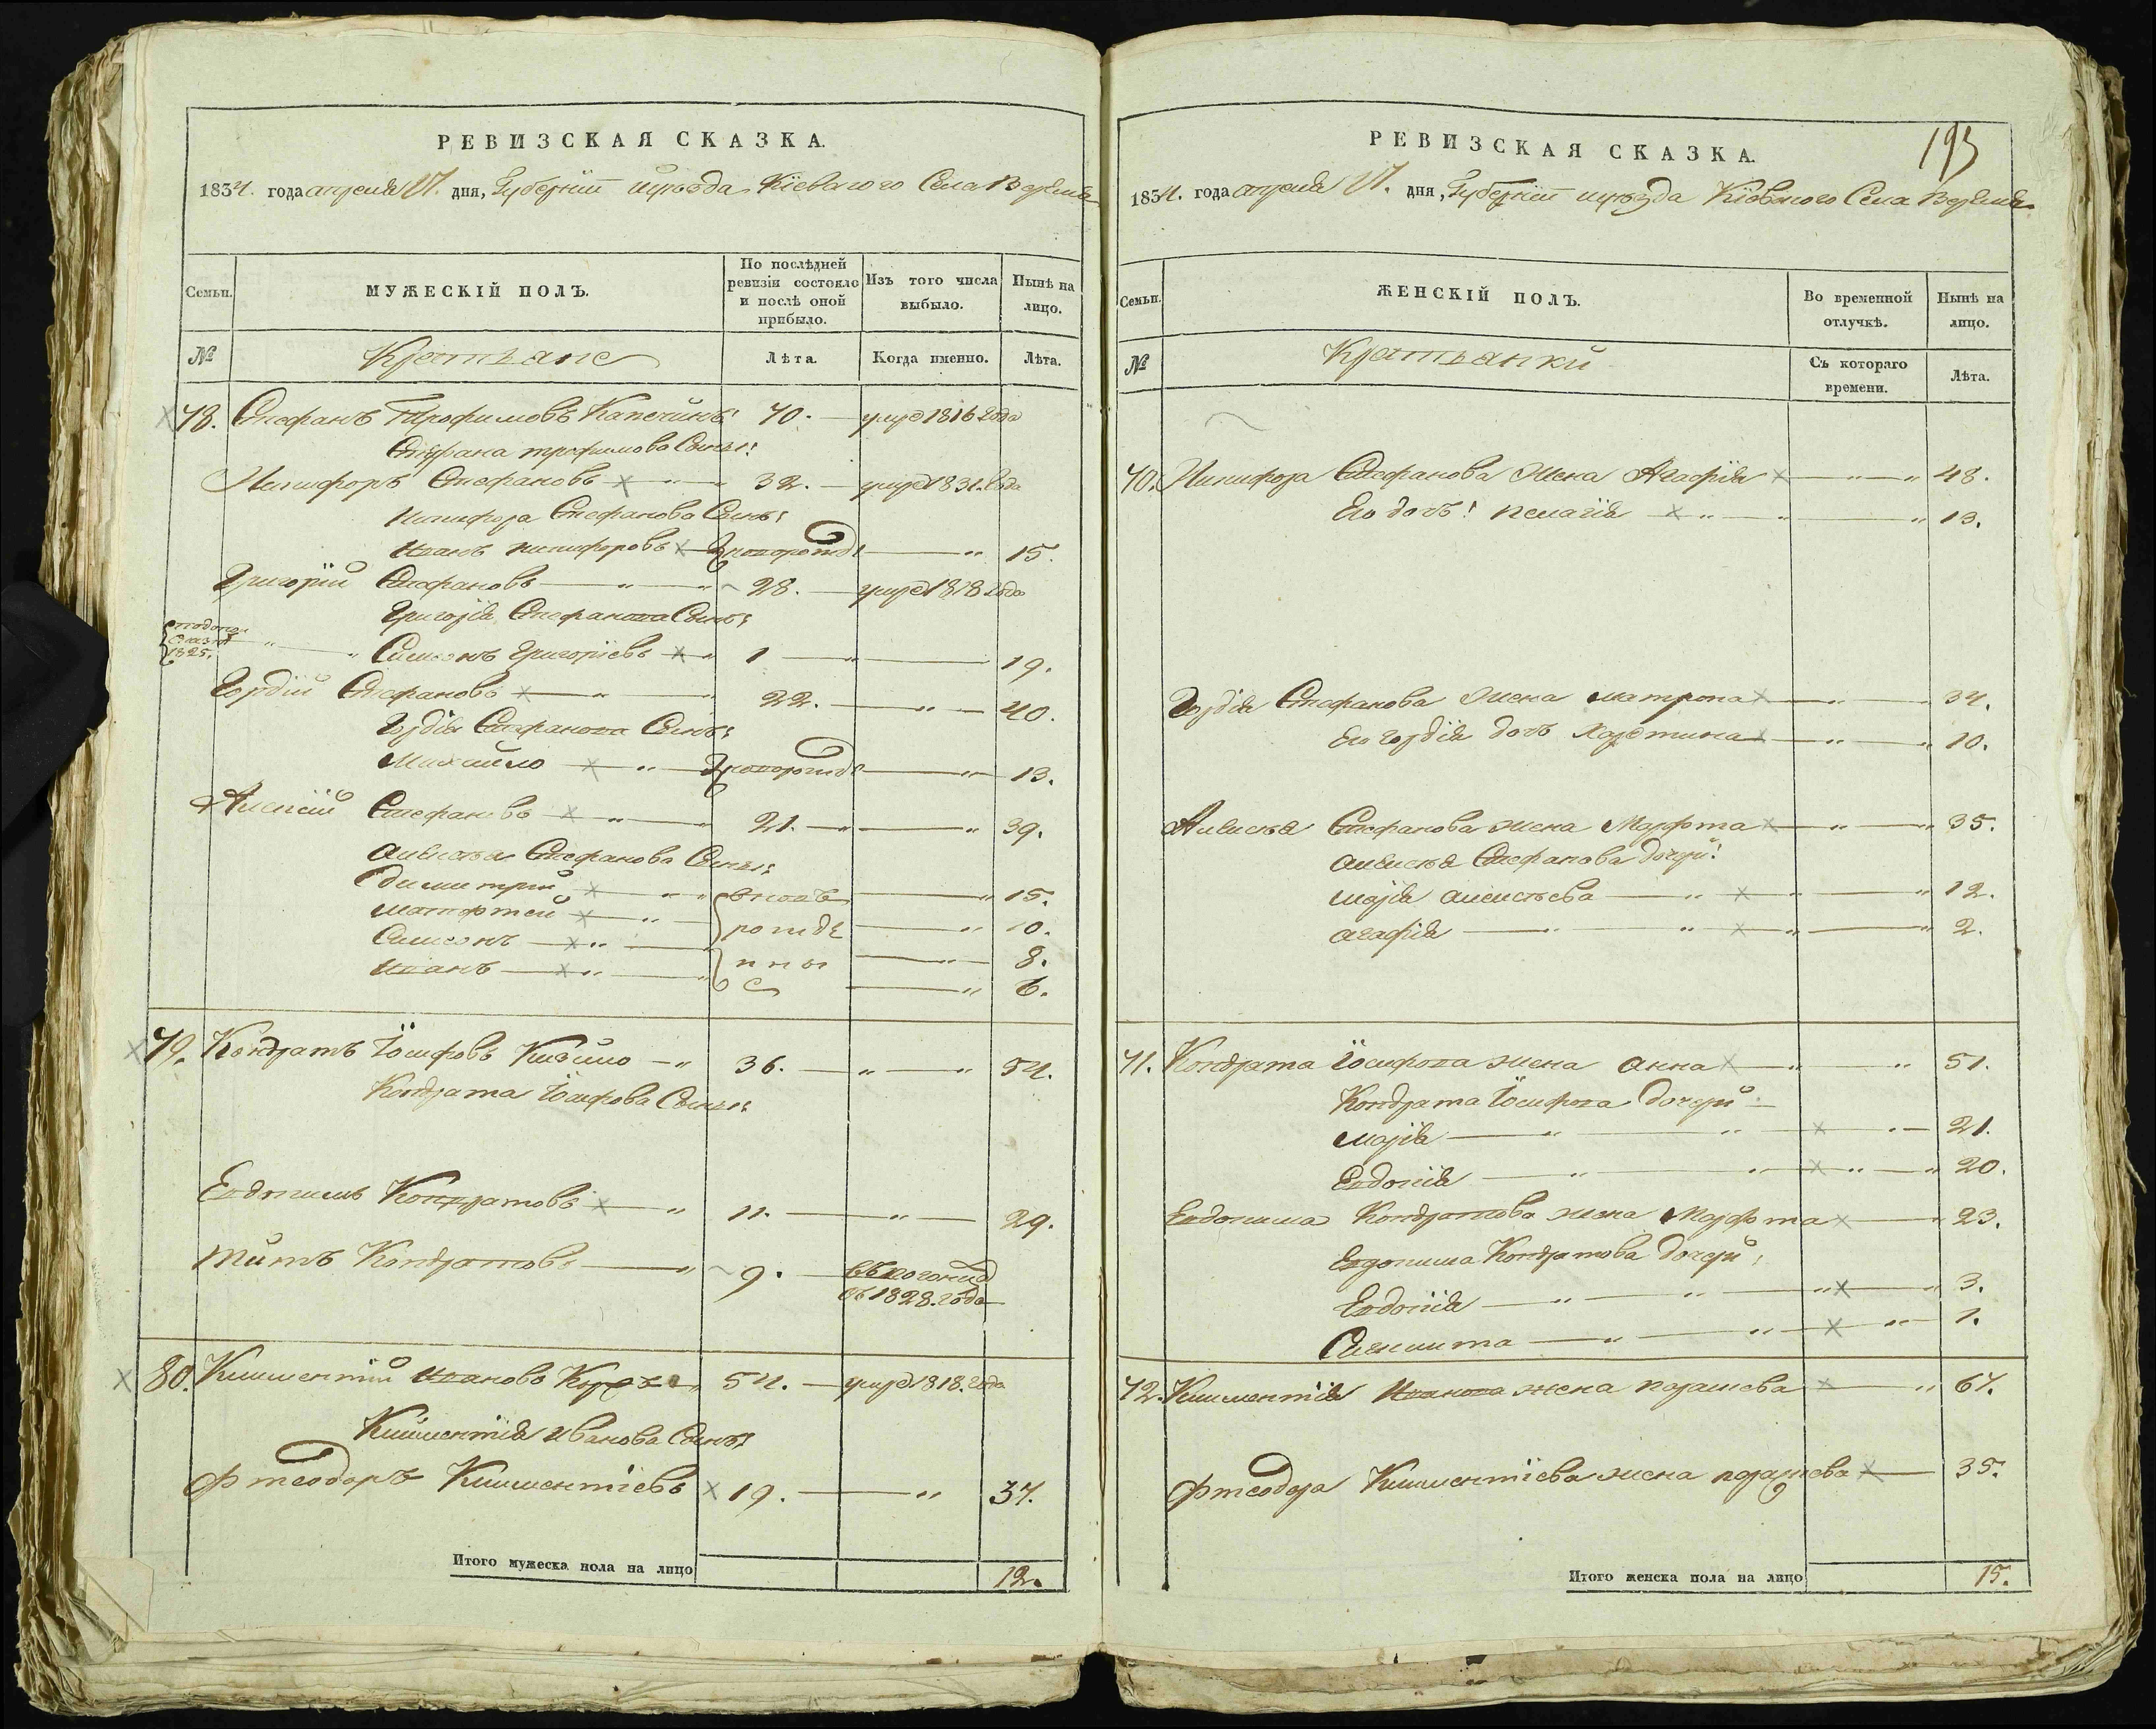 РЕВИЗСКАЯ СКАЗКА.
1834. года апреля 17. дня, Губернiи и уѣзда Кiевского Села
Семьи.
МУЖЕСКIЙ ПОЛЪ.
По послѣдней ревизiи состояло и послѣ оной прибыло.
Изъ того числа выбыло.
Нынѣ на лицо.
№
Крестьяне
Лѣта.
Когда именно.
Лѣта.
78. Стефанъ Трофимовъ 70. умре 1816 года
Стефана трофимова Сыны:
Никифоръ Стефановъ 32. умре 1831. года
Никифора Стефанова Сынъ:
Иванъ никифоровъ новорожде 15.
Григорiй Стефановъ 28. умре 1818 года
Григорiя Стефанова Сынъ:
1825.
Симеонъ Григорiевъ 1 19.
Гордiй Стефановъ 22. 40.
Гордiя Стефанова Сынъ:
Михайло новорожде 13.
Алексiй Стефановъ 21. 39.
алексѣя Стефанова Сыны:
димитрiй вновь 15.
матфтей рожде 10.
Симеонъ нны 8.
Иванъ е 6.
79. Кондратъ Iосифовъ 36. 54.
Кондрата Iосифова Сыны:
Евдокимъ Кондратовъ 11. 29.
Титъ Кондратовъ 9.
въ 1828. года
80. Климентiй Ивановъ 54. умре 1818. года
Климентiя Иванова Сынъ:
Фтеодоръ Климентiевъ 19. 37.
Итого мужеска пола на лицо 12.
193
РЕВИЗСКАЯ СКАЗКА.
1834. года апреля 17. дня, Губернiи и уѣзда Кiевского Села
Семьи.
ЖЕНСКIЙ ПОЛЪ.
Во временной отлучкѣ.
Нынѣ на лицо.
№
Крестьянки
Съ котораго времени.
Лѣта.
70. Никифора Стефанова жена Агафiя 48.
Его дочь: пелагiя 13.
Гордiя Стефанова жена матрона 34.
Его гордiя дочь Харетина 10.
Алексѣя Стефанова жена Марфта 35.
алексѣя Стефанова дочери:
марiя алексѣева 12.
агафiя 2.
71. Кондрата Iосифова жена анна 51.
Кондрата Iосифова дочери
марiя 21.
Евдокiя 20.
Евдокима Кондратова жена Марфта 23.
Евдокима Кондратова дочери:
Евдокiя 3.
1.
72. Климентiя Иванова жена параскева 67.
Фтеодора Климентiева жена параскева 35.
Итого женска пола на лицо 15.